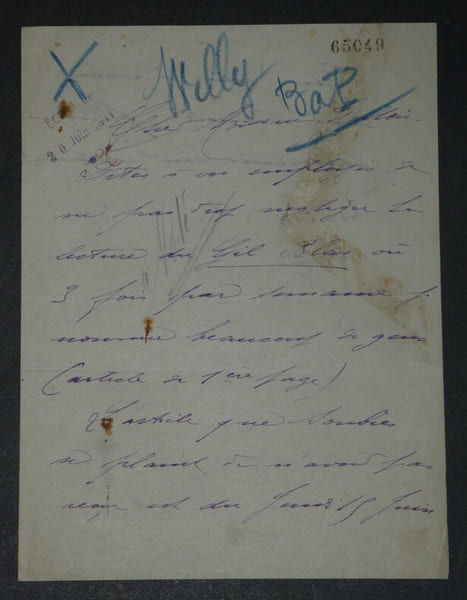 65049
Willy
20 Juin
Dites à vos employés de
ne pas trop négliger la
lecture du Gil Blas où
3 fois par semaine je
nomme beaucoup de gens
(article de 1ère page)
L'article que Soubies
se plaint de n'avoir pas
reçu est du Jeudi 15 Juin